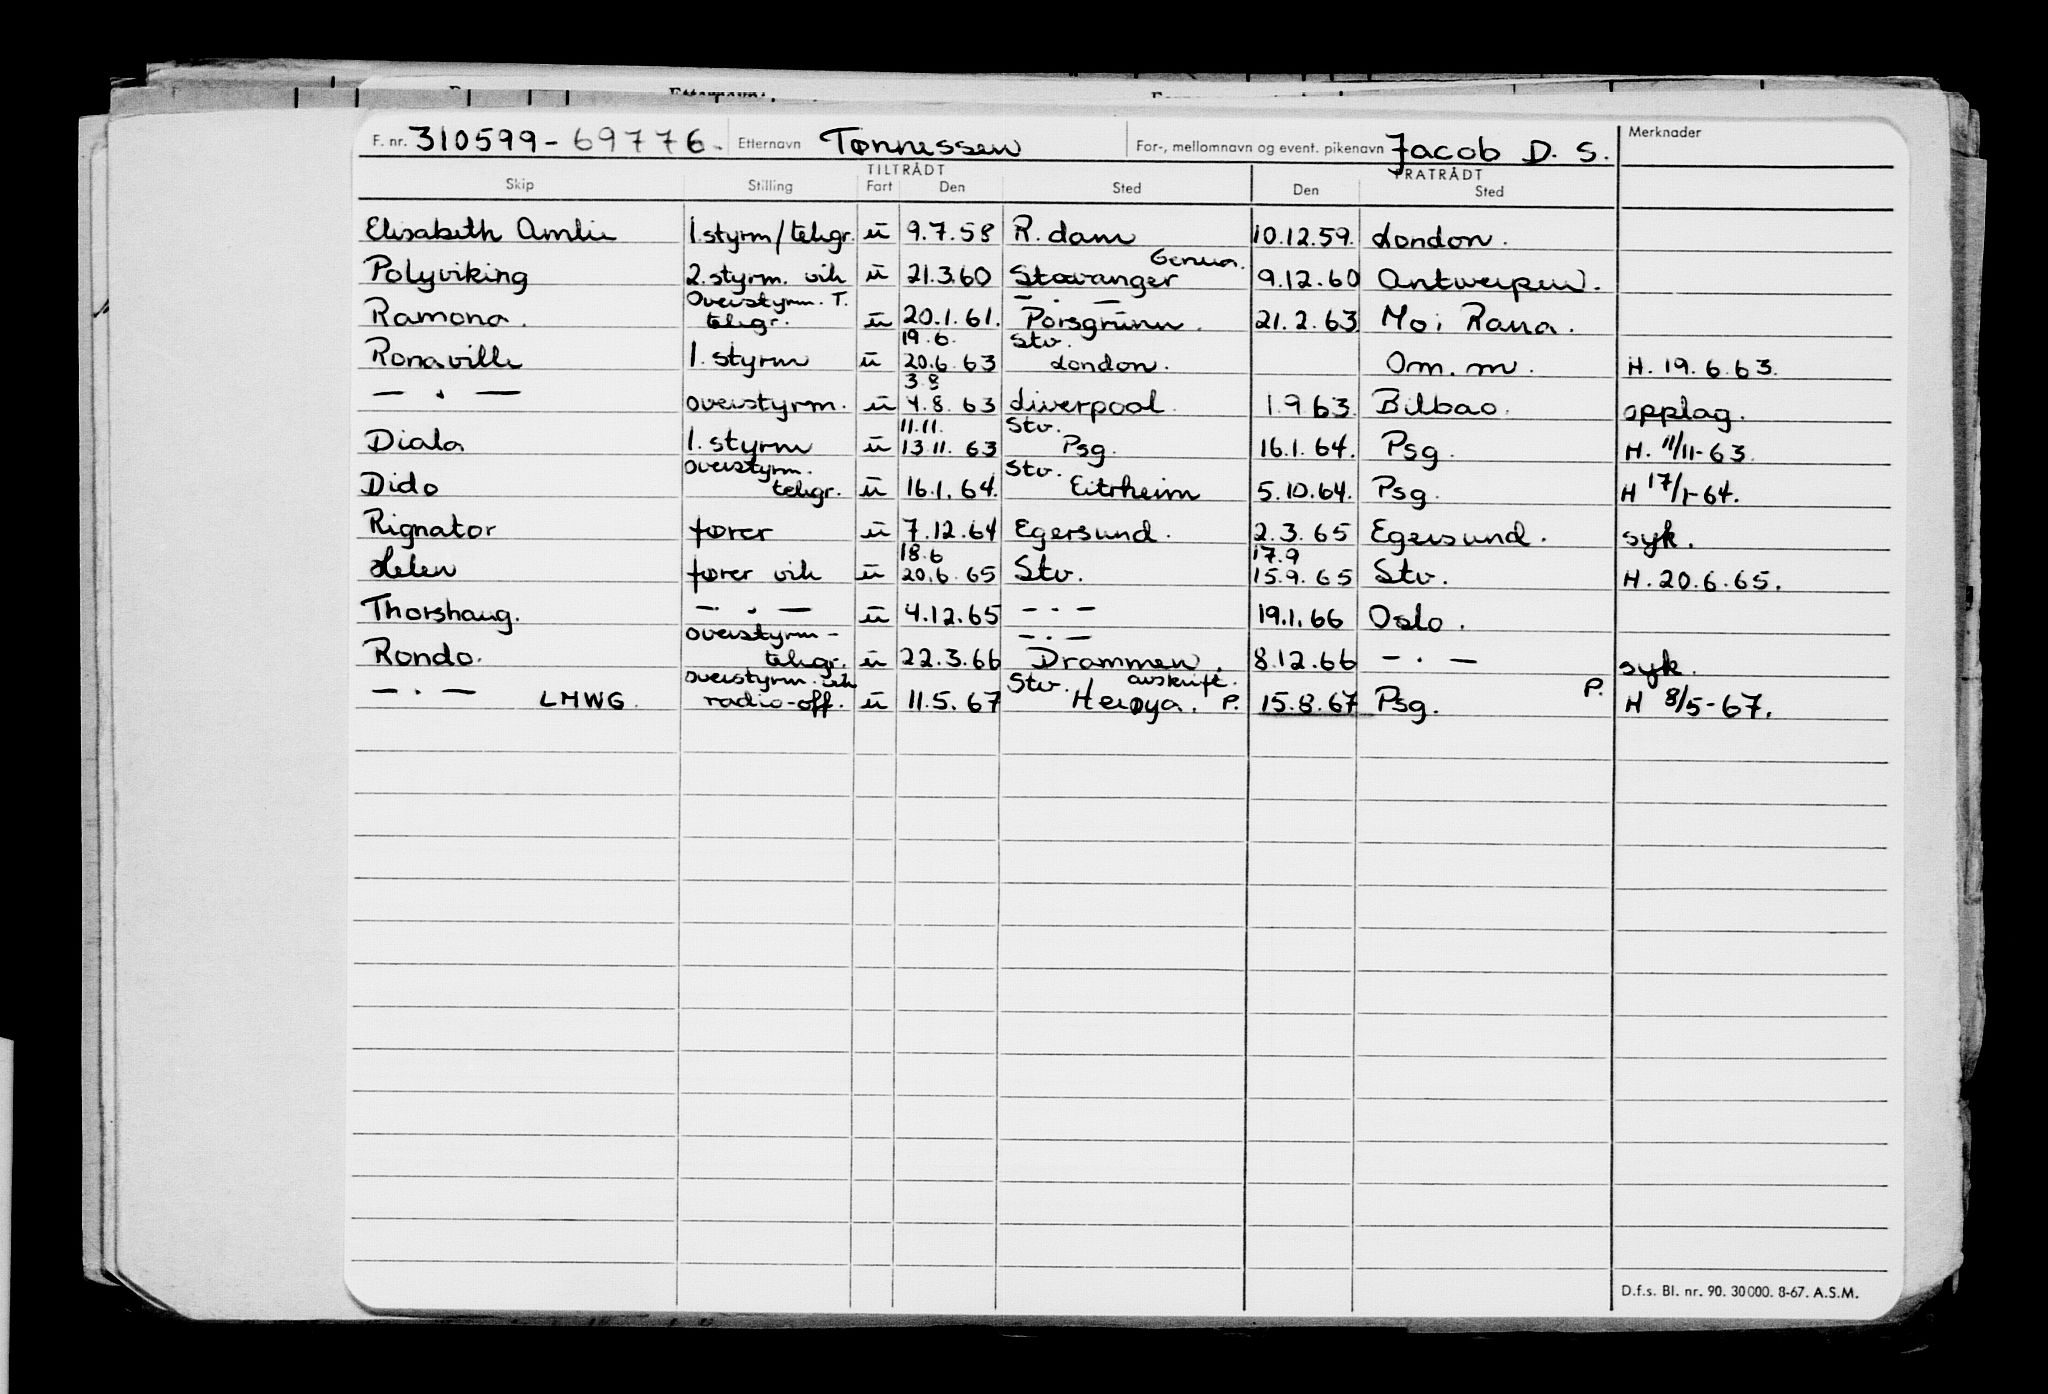 F. nr. 310599-69776. Etternavn Tønnessen For-, mellomnavn og event. pikenavn Jacob D. S. Merknader
TILTRÅDT FRATRÅDT
Skip Stilling Fart Den Sted Den Sted
Elisabeth Amlie 1.styrm/telegr. ü 9.7.58 R.dam 10.12.59. London.
Genua.
Polyviking 2.styrm. vik ü 21.3.60 Stavanger 9.12.60 Antwerpen.
Overstyrm. T. — . —
Ramona. telegr. ü 20.1.61. Porsgrunn. 21.2.63 Mo i Rana.
19.6. Stv.
Ronaville 1.styrm ü 20.6.63 London. Om. m. H. 19.6.63.
3.8
— . — overstyrm. ü 4.8.63 Liverpool. 1.9.63. Bilbao. opplag.
11.11. Stv.
Diala 1.styrm ü 13.11.63 Psg. 16.1.64. Psg. H. 11/11-63.
overstyrm. Stv.
Dido telegr. ü 16.1.64. Eitrheim 5.10.64. Psg. H 17/1-64.
Rignator fører ü 7.12.64 Egersund. 2.3.65 Egersund. syk.
18.6 17.9
Helen fører vik ü 20.6.65 Stv. 15.9.65 Stv. H. 20.6.65.
Thorshaug. — . — ü 4.12.65 - - - 19.1.66 Oslo.
overstyrm- — . —
Rondo. telegr. ü 22.3.66 Drammen. 8.12.66 — . — syk.
overstyrm. vik Stv. avskrift. P.
— . — LMWG. radio-off. ü 11.5.67 Herøya. P. 15.8.67 Psg. H 8/5-67.
D.f.s. Bl. nr. 90. 30000. 8-67. A.S.M.